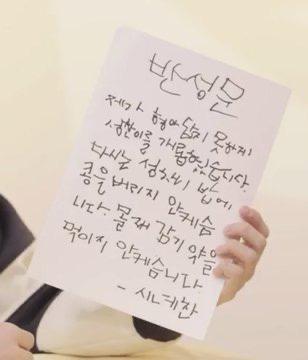 반성문
제가 형아 답지 못하게
성찬이를 개롭혔습니다.
다시는 성찬이 밥에
콩을 버리지 안케슴
니다. 몰래 감기 약을
먹이지 안케습니다.
- 시네찬